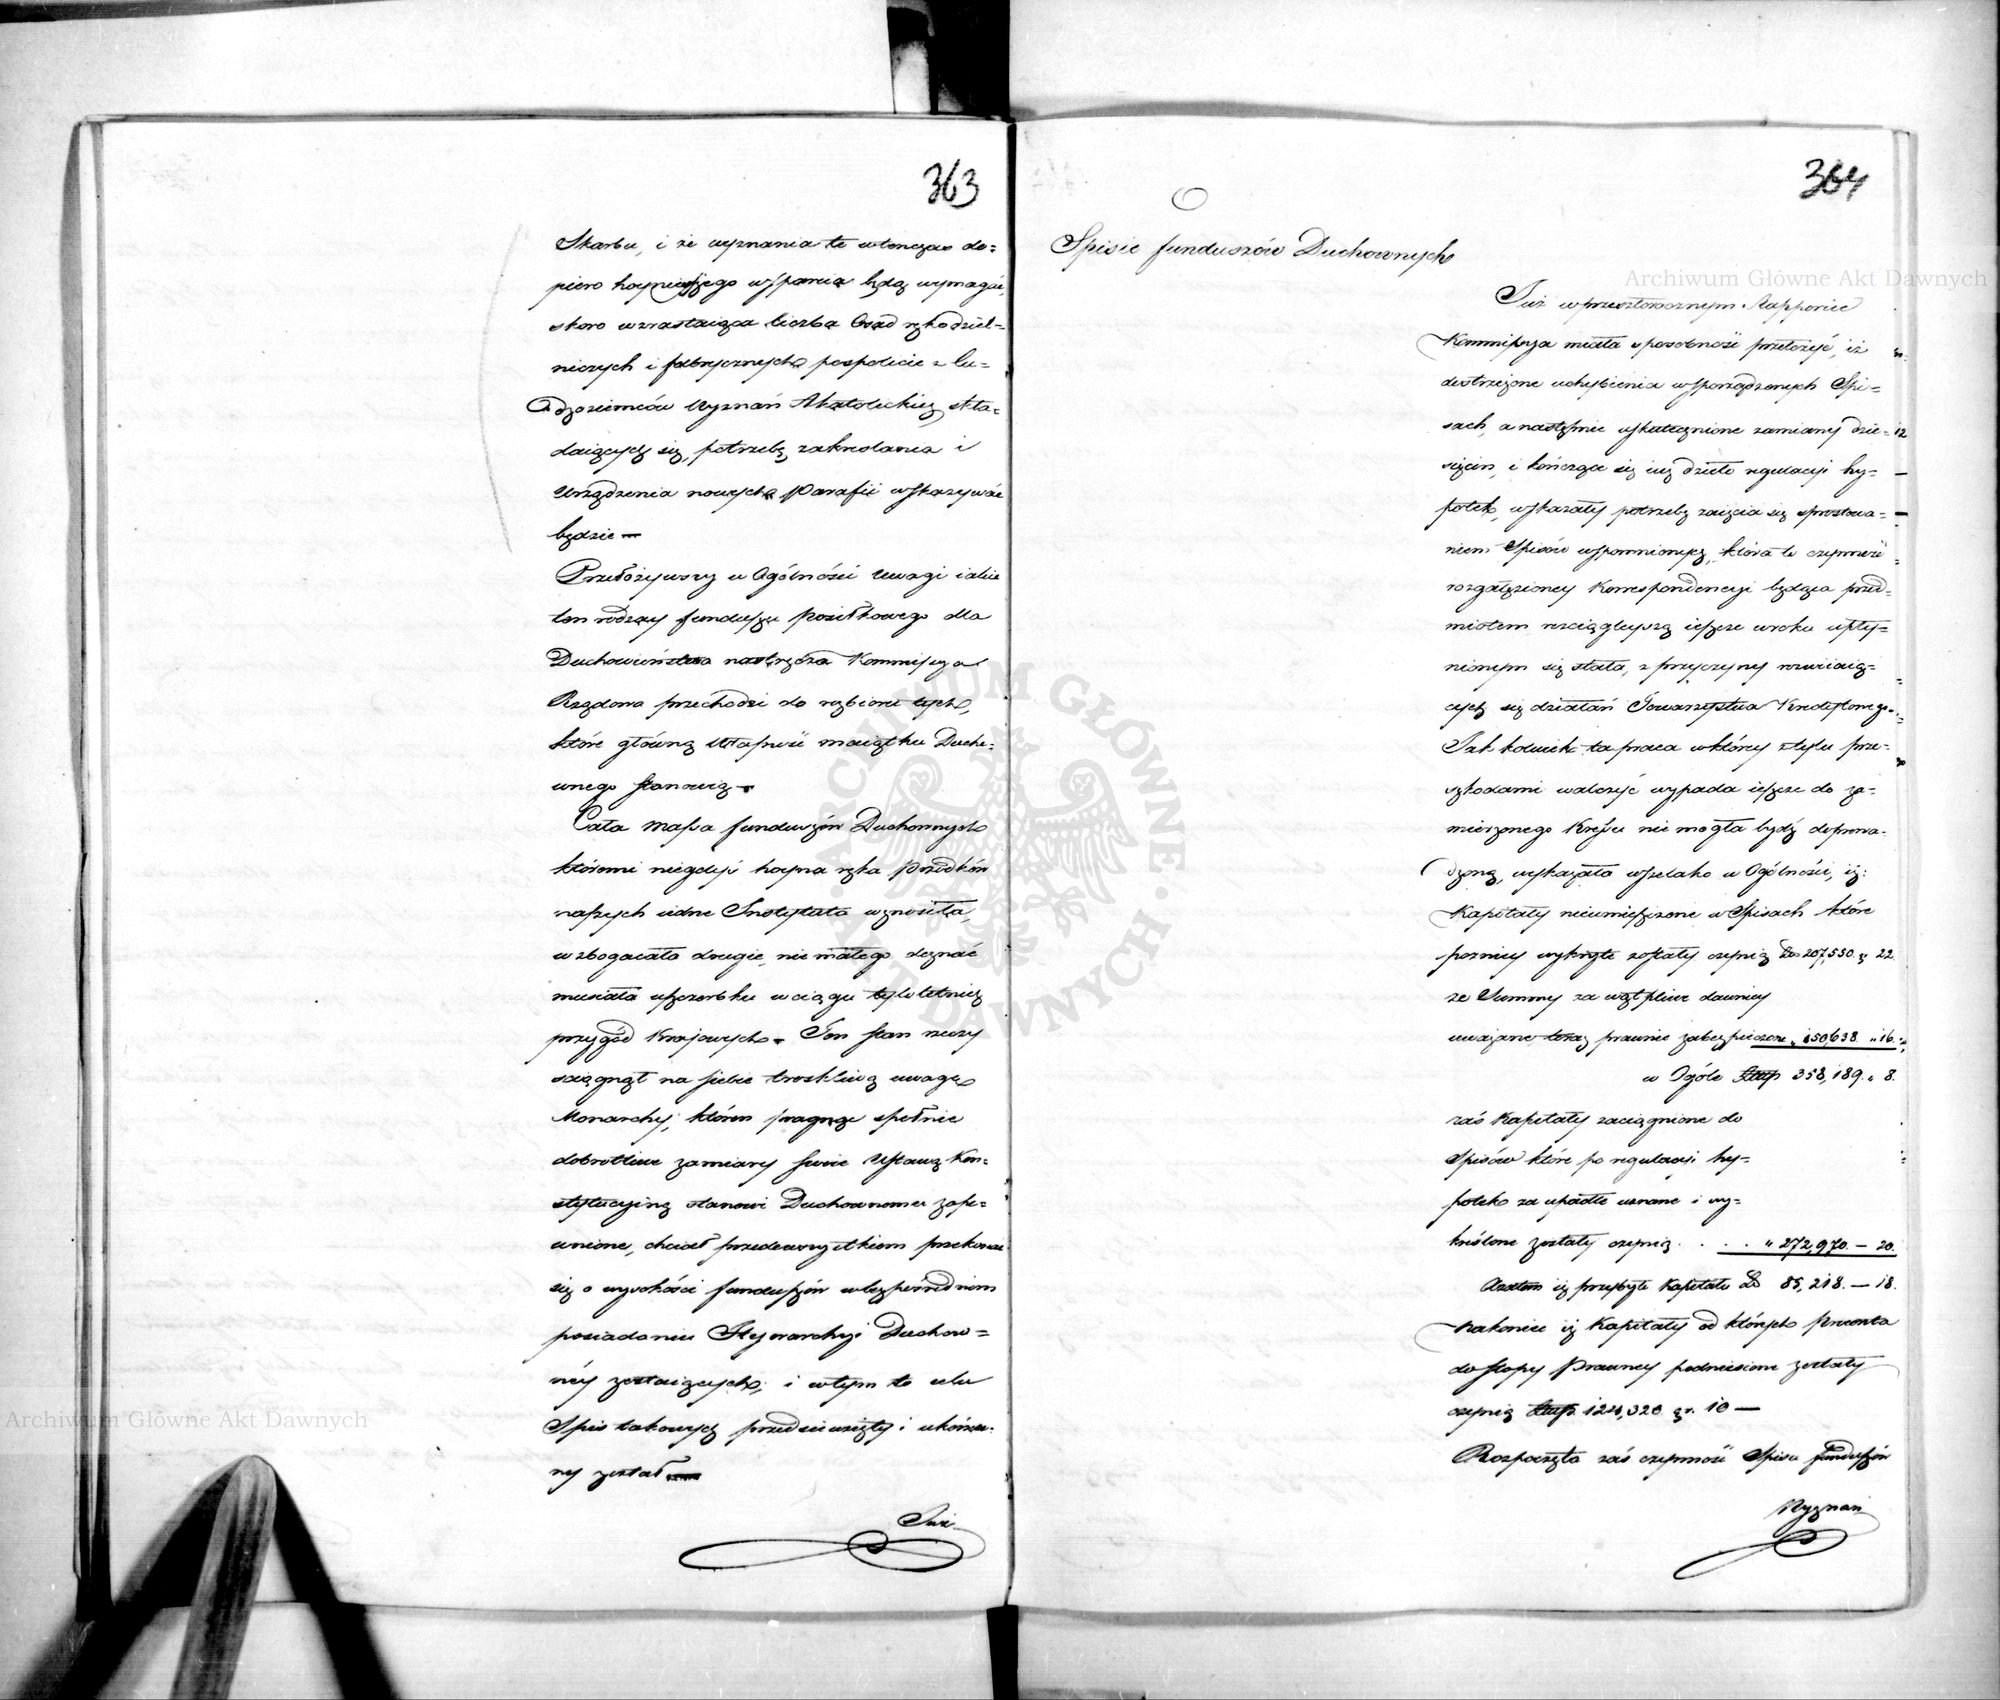 363
Skarbu, i że wyznania te wtenczas do=
piero hoynieyszego wsparcia będą wymagać,
skoro wzrastaiąca liczba Osad rękodziel=
niczych i fabrycznych pospolicie z Cu=
dzoziemców Wyznań Akatolickich skła=
daiących się, potrzebę zakreślania i
Urządzenia nowych Parafii wskazywać
będzie —
Przełożywszy w Ogólności Uwagi iakie
ten rodzay funduszu Posiłkowego dla
Duchowieństwa nastręcza Kommissya
Rządowa przechodzi do rozbioru tych,
które główną Własność maiątku Ducho=
wnego stanowią —
Cała Massa funduszów Duchownych
któremi niegdyś hoyna ręka Przodków
naszych iedne Instytuta wznosiła,
wzbogacała drugie, nie małego doznać
musiała uszczerbku w ciągu tyloletnich
przygód Kraiowych — Ten stan rzeczy
ściągnął na siebie troskliwą uwagę
Monarchy, który pragnąc spełnić
dobrotliwe zamiary swoie Ustawą Kon=
stytucyiną stanowi Duchownemu zape=
wnione, chciał przedewszystkiem przekonać
się o wysokości funduszów w bezpośredniem
posiadaniu Hyerarchyi Duchow=
ney zostaiących, i w tym to celu
Spis takowych przedsięwzięty i ukończo=
ny został —
Już
364
Spisie funduszów Duchownych
Już w przeszłorocznym Rapporcie
Kommissya miała sposobność przełożyć, iż
dostrzeżone uchybienia w sporządzonych Spi=
sach, a następnie uskutecznione zamiany dzie=
sięcin, i kończące się iuż dzieło regulacyi hy=
potek, wskazały potrzebę zaięcia się sprostowa=
niem Spisów wspomnionych, która to czynność
rozgałęzioney Korrespondencyi będąca przed=
miotem rozciągleyszą ieszcze w roku upły=
nionym się stała, z przyczyny rozwiiaią=
cych się działań Towarzystwa Kredytowego.
Jakkolwiek ta praca w którey z tylu prze=
szkodami walczyć wypada ieszcze do za=
mierzonego Kresu nie mogła bydź doprowa=
dzoną, wykazała wszelako w Ogólności, iż:
Kapitały nieumieszczone w Spisach które
poźniey wykryte zostały czynią Zło 207,550. gr 22.
że Summy za wątpliwe dawniey
uważane teraz prawnie zabezpieczone " 150,638. " 16.
w Ogóle Złtp 358,189. " 8.
zaś Kapitały zaciągnione do
Spisów które po regulacyi hy=
potek za upadłe uznane i wy=
kreślone zostały czynią . . . " 272,970. — 20.
Zatem iż przybyło Kapitału Zło 85,218. — 18.
Nakoniec iż Kapitały od których Procenta
do stopy Prawney podniesione zostały
czynią Złtp. 124,320 gr. 10 —
Rozpoczęta zaś czynność Spisu funduszów
Wyznań
Archiwum Główne Akt Dawnych
Archiwum Główne Akt Dawnych
ARCHIWUM GŁÓWNE AKT DAWNYCH